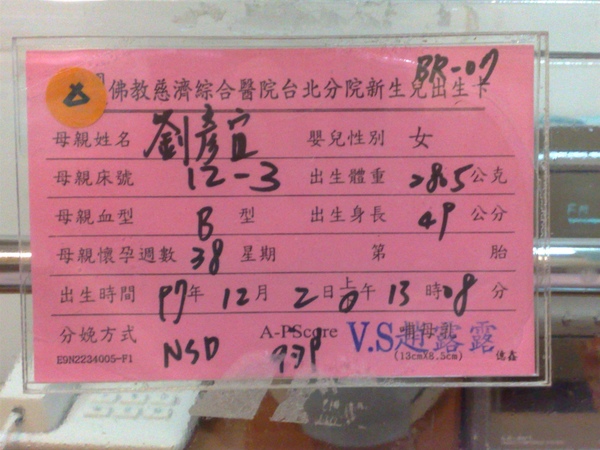 BR-07
佛教慈濟綜合醫院台北分院新生兒出生卡
母親姓名 劉彥宜 嬰兒性別 女
母親床號 12-3 出生體重 2865 公克
母親血型 B 型 出生身長 49 公分
母親懷孕週數 38 星期 第 胎
出生時間 97年 12月 2日 上午 13時08分
分娩方式 NSD A-PScore V.S趙露露
E9N2234005-F1 (13cmX8.5cm) 德鑫